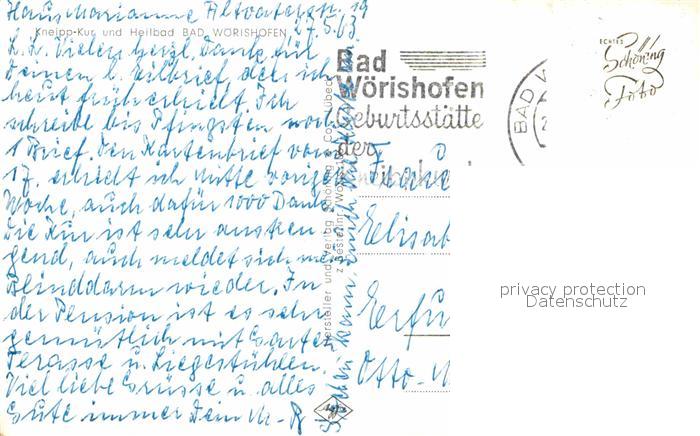 Haus Marianne Altvaterstr. 19
Kneipp-Kur und Heilbad BAD WÖRISHOFEN
27.5.63
L. L. Vielen herzl. Dank für
Deinen l. Eilbrief, den ich
heut früh erhielt. Ich
schreibe bis Pfingsten noch
1 Brief. Den Kartenbrief vom
17. erhielt ich Mitte voriger
Woche, auch dafür 1000 Dank.
Die Kur ist sehr anstren
gend, auch meldet sich mein
Blinddarm wieder. In
der Pension ist es sehr
gemütlich mit Garten
Terasse u. Liegestühlen.
Viel liebe Grüsse u. alles
Gute immer Dein M-R
Hersteller und Verlag Schöning & Co., Lübeck
Bad
Wörishofen
Geburtsstätte
der
BAD W
ECHTES
Schöning
Foto
Frau
Elisab
Erfu
Otto-
privacy protection
Datenschutz